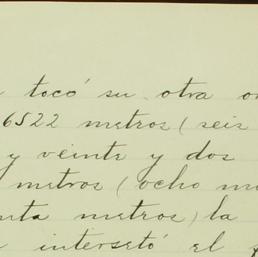 tocó su otra
6522 metros (seis
y veinte y dos
metros (ocho
metros) la
intersetó el